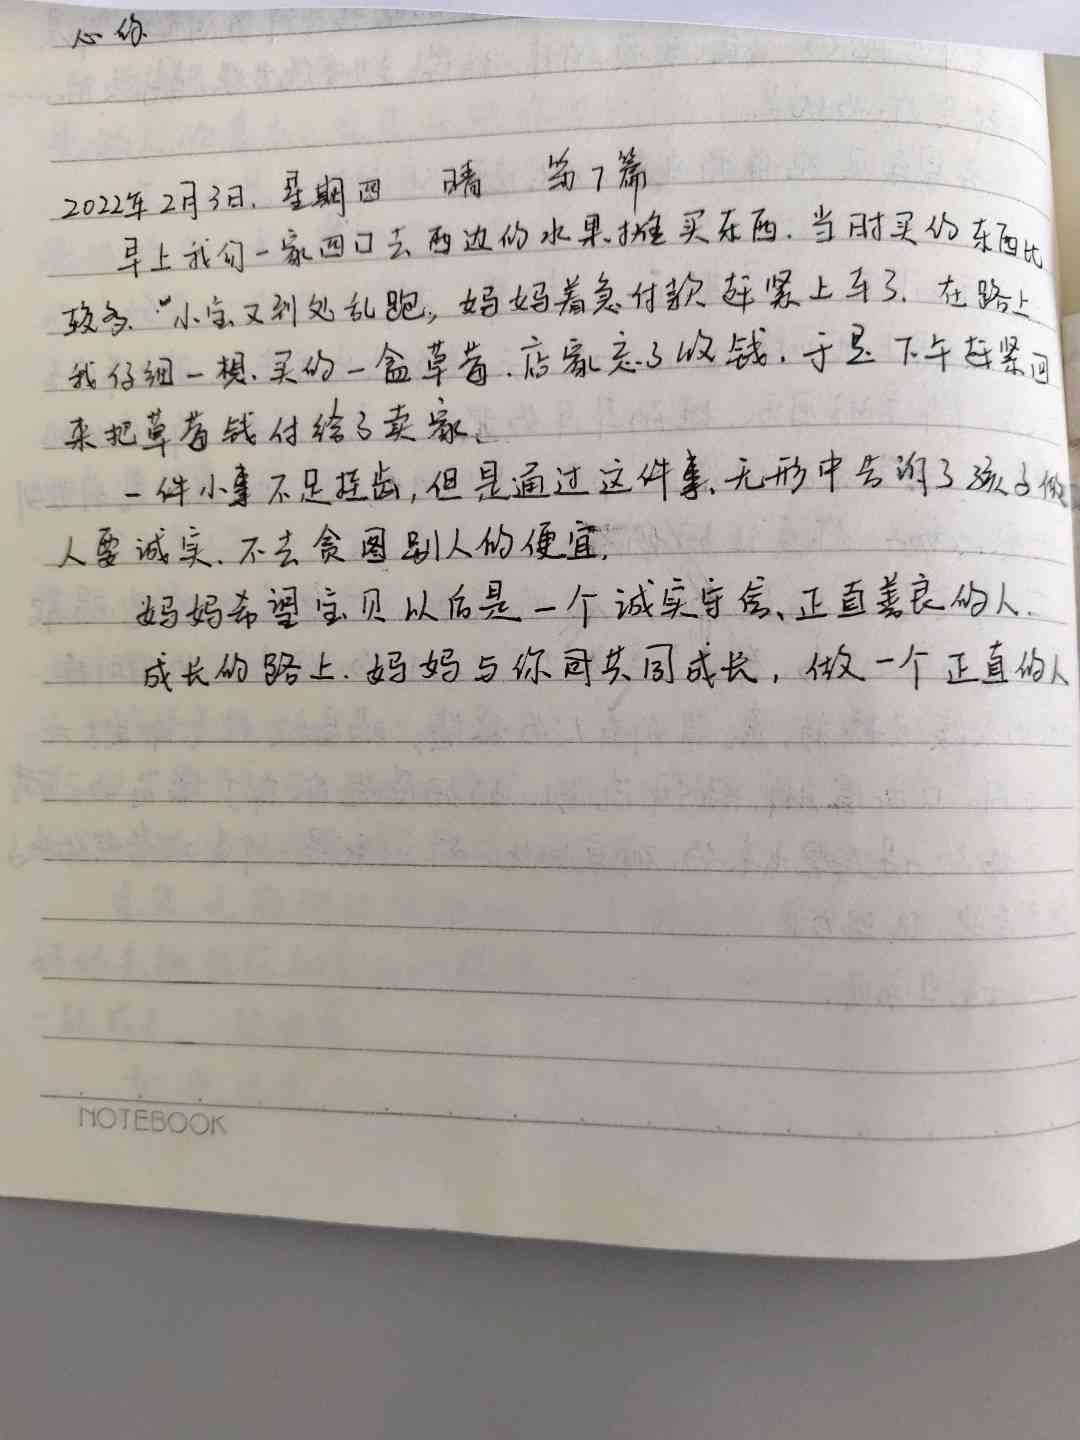 心的
2022年2月3日. 星期四 晴 第7篇
早上我们一家四口去西边的水果摊买东西.当时买的东西比
较多."小宝又到处乱跑,妈妈着急付款赶紧上车了.在路上
我仔细一想.买的一盒草莓.店家忘了收钱.于是下午赶紧回
来把草莓钱付给了卖家.
一件小事不足挂齿,但是通过这件事、无形中告诉了孩子做
人要诚实.不去贪图别人的便宜.
妈妈希望宝贝以后是一个诚实守信、正直善良的人.
成长的路上.妈妈与你同共同成长,做一个正直的人
NOTEBOOK